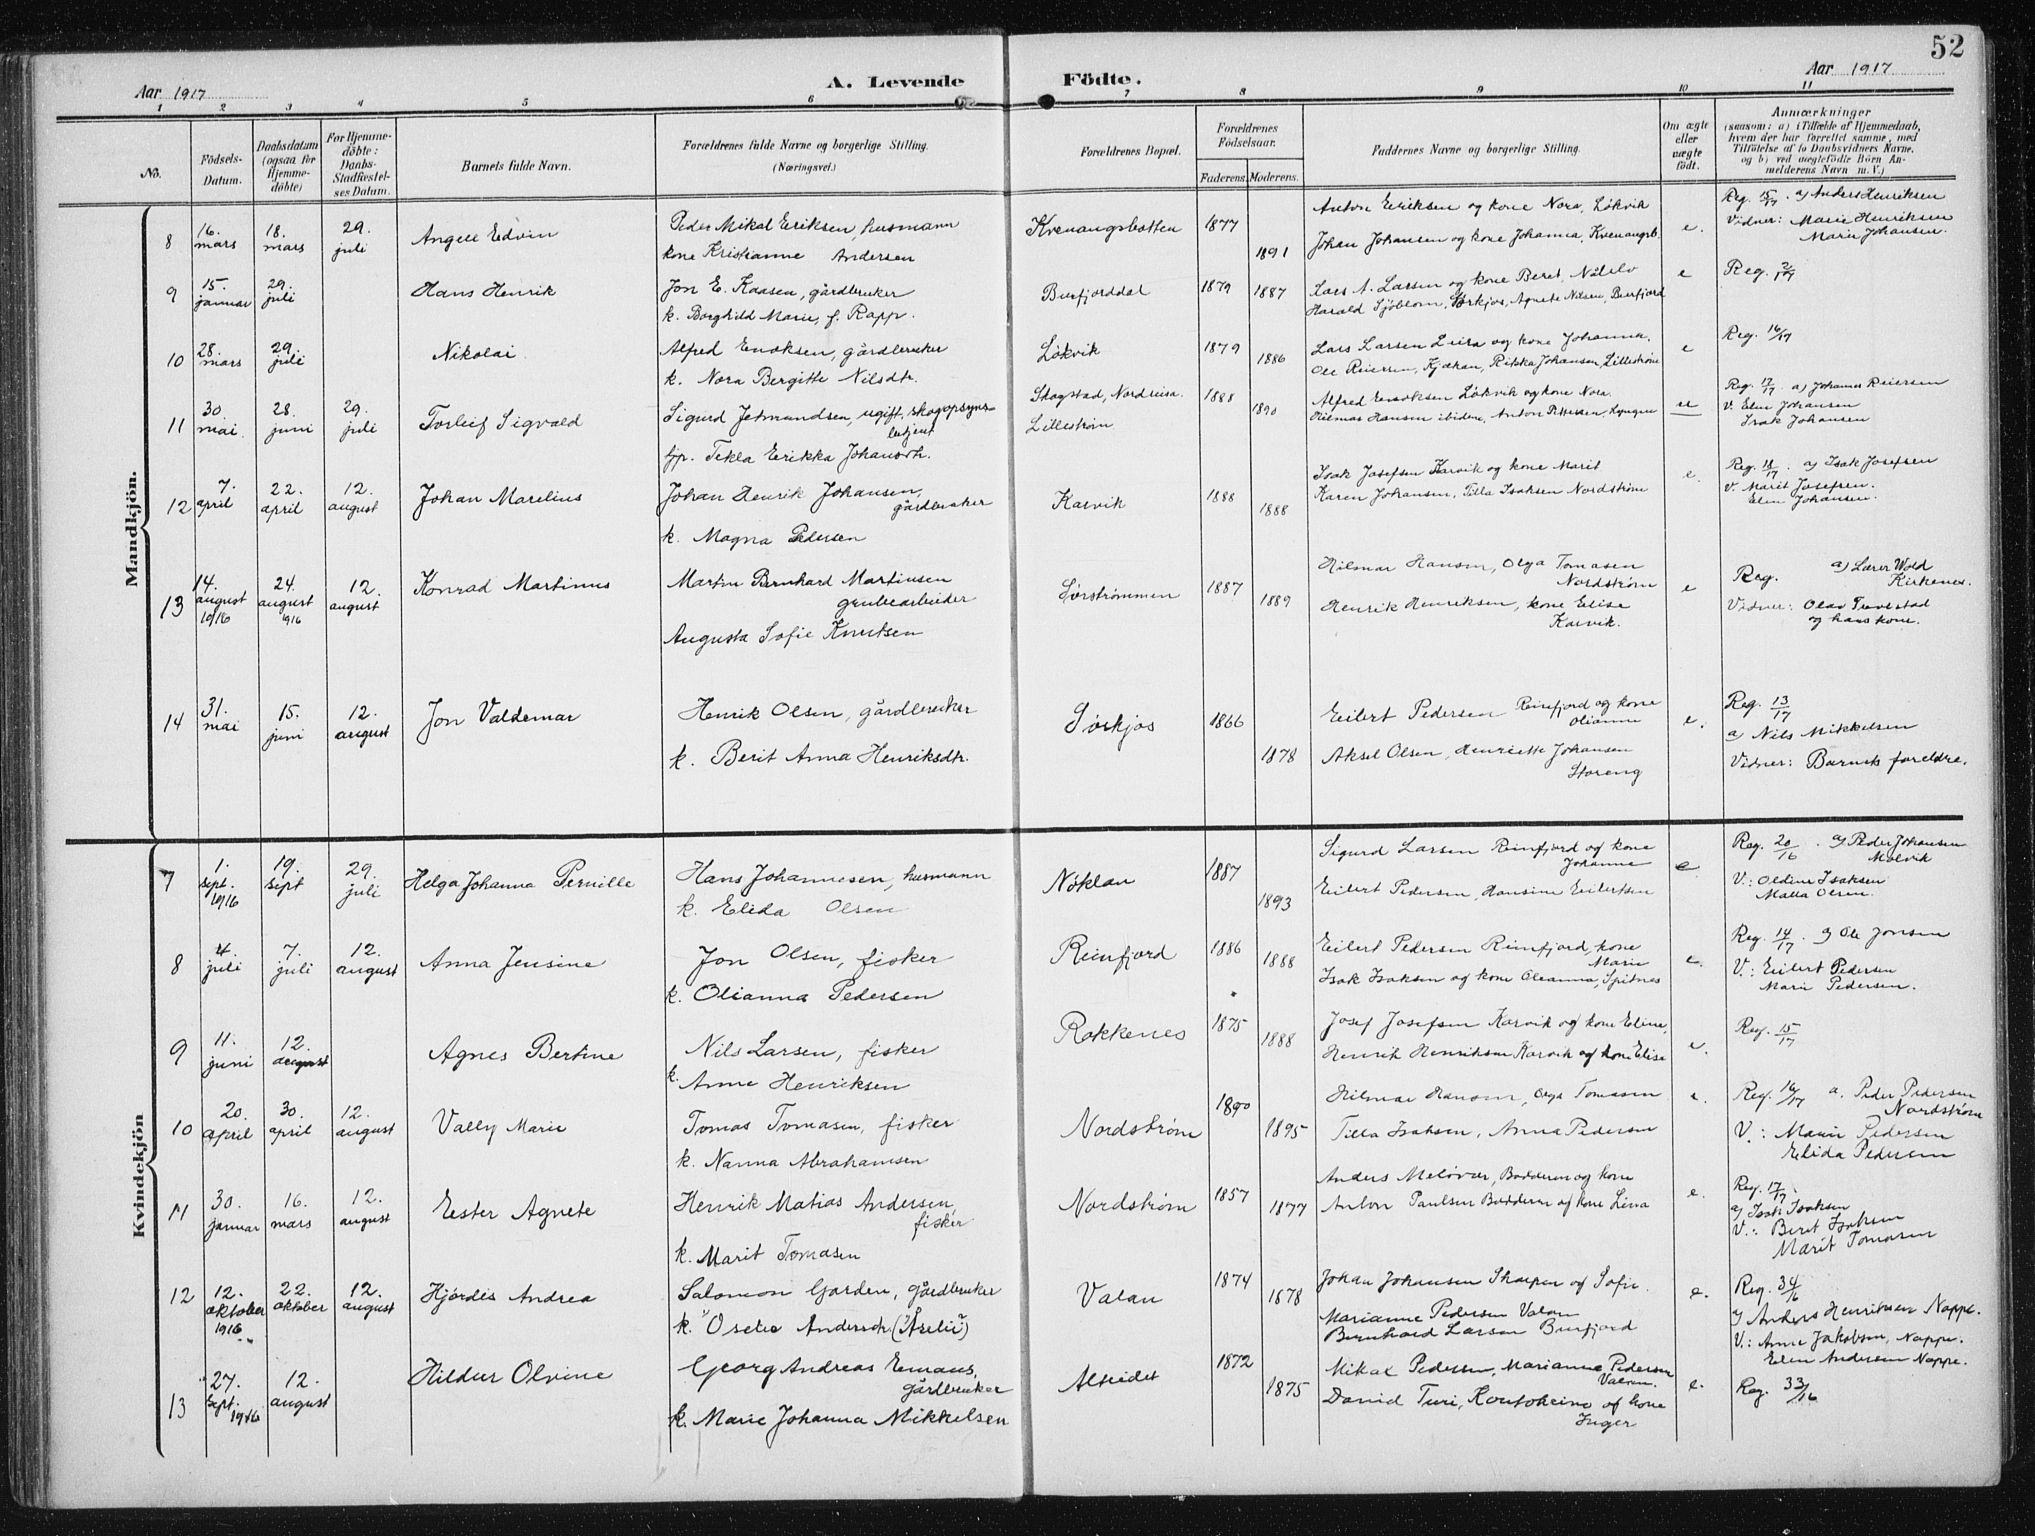 52
Aar 1917
A. Levende Födte.
Aar 1917
1 2 3 4 5 6 7 8 9 10 11
No.
Födsels-Datum.
Daabsdatum (ogsaa for Hjemmedöbte)
For Hjemmedöbte: Daabs-Stadfæstelses Datum.
Barnets fulde Navn.
Forældrenes fulde Navne og borgerlige Stilling.
(Næringsvei.)
Forældrenes Bopæl.
Forældrenes Födselsaar.
Faderens. Moderens.
Faddernes Navne og borgerlige Stilling.
Om ægte eller uægte födt.
Anmærkninger
(saasom: a) i Tilfælde af Hjemmedaab, hvem der har forrettet samme, med Tilföielse af to Daabsvidners Navne, og b) ved uægtefödte Börn Anmelderens Navn m. V.)
Mandkjön.
8 16. mars 18. mars 29. juli
Angell Edvin
Peder Mikal Eriksen, husmann
kone Kristianne Andersen
Kvenangsbotten 1877 1891
Anton Eriksen og kone Nora, Løkvik
Johan Johansen og kone Johanna, Kvenangsb.
e.
Reg. 15/17. a) Anders Henriksen
Vidner: Marie Henriksen
Marie Johansen.
9 15. januar 29. juli
Hans Henrik
Jon E. Kaasen, gårdbruker
k. Borghild Marie, f. Rapp.
Burfjorddal 1879 1887
Lars A. Larsen og kone Beret,
Harald Sjöblom, Sørkjos, Agnete Nilsen, Burfjord
e
Reg. 2/17
10 28. mars 29. juli
Nikolai
Alfred Enoksen, gårdbruker
k. Nora Bergitte Nilsdtr.
Løkvik 1879 1886
Lars Larsen og kone Johanna,
Ole Reiersen, Kjækan, Johansen, Lillestrøm
e
Reg. 16/17
11 30. mai. 28. juni 29. juli
Torleif Sigvald
Sigurd Jetmundsen, ugift, skogopsyns-
betjent
fp. Tekla Erikka Johansdtr.
Skogstad, Nordreisa.
Lillestrøm
1888 1890
Alfred Enoksen Løkvik og kone Nora.
Hilmar Hansen ibidem, Anton Pettersen, Lyngen
ue
Reg. 17/17 a) Johannes Reiersen
V. Elen Johansen
Isak Johansen
12 7. april 22. april 12. august
Johan Marelius
Johan Henrik Johansen,
gårdbruker
k. Magna Pedersen
Karvik 1888 1888
Isak Josefsen Karvik og kone Marit
Karen Johansen, Tilla Isaksen Nordstrøm
e.
Reg. 18/17 a) Isak Josefsen
V. Marit Josefsen.
Elen Johansen.
13 14. august 1916 24. august 1916 12. august
Konrad Martinus
Martin Bernhard Martinsen
grubearbeider
Augusta Sofie Knutsen
Sørstrømmen 1887 1889
Hilmar Hansen, Olga Tomasen
Nordstrøm
Henrik Henriksen, kone Elise
Karvik.
e
Reg. a) Lærer Wold
Kirkenes.
Vidner: Olav
og hans kone.
14 31. mai 15. juni 12. august
Jon Valdemar
Henrik Olsen, gårdbruker
k. Berit Anna Henriksdtr.
Sørkjos 1866 1878
Eilert Pedersen Reinfjord og kone
Olianna
Aksel Olsen, Henriette Johansen
Storeng
e.
Reg. 13/17
a) Nils Mikkelsen
Vidner: Barnets foreldre.
Kvindekjön
7 1. Sept. 1916 19. Sept 29. juli
Helga Johanna Pernille
Hans Johannesen, husmann
k. Elida Olsen
Nøklan 1887 1893
Sigurd Larsen Reinfjord og kone
Johanne
Eilert Pedersen, Hansine Eilertsen
e
Reg. 20/16. a) Peder Johansen
V.: Oldine Isaksen
Malla Olsen.
8 4. juli 7. juli 12. august
Anna Jensine
Jon Olsen, fisker
k. Olianna Pedersen
Reinfjord 1886 1888
Eilert Pedersen Reinfjord, kone
Marie
Isak Isaksen og kone Oleanna, Spitnes
e.
Reg. 14/17. a) Ole Jonsen
V.: Eilert Pedersen
Marie Pedersen.
9 11. juni 12. august
Agnes Bertine
Nils Larsen, fisker
k. Anne Henriksen
Rakkenes 1875 1888
Josef Josefsen Karvik og kone Eline,
Henrik Henriksen Karvik og kone Elise
e.
Reg. 15/17
10 20. april 30. april 12. august
Vally Marie
Tomas Tomasen, fisker
k. Nanna Abrahamsen
Nordstrøm 1890 1895
Hilmar Hansen, Olga Tomasen
Tilla Isaksen, Anna Pedersen
e.
Reg. 16/17 a. Peder Pedersen
Nordstrøm
V.: Marie Pedersen
Elida Pedersen
11 30. januar 16. mars 12. august
Ester Agnete
Henrik Matias Andersen,
fisker
k. Marit Tomasen
Nordstrøm 1857 1877
Anders Meløvær, Badderen og kone
Anton Paulsen Badderen og kone Lina
e.
Reg. 17/17
a) Isak Isaksen
V.: Beret Isaksen
Marit Tomasen
12 12. oktober 1916 22. oktober 12. august
Hjördis Andrea
Salomon Garden, gårdbruker
k. "Oselie Andersdtr. ("Aselie")
Valan 1874 1878
Johan Johansen Skarpen og Sofie.
Marianne Pedersen Valan
Bernhard Larsen Burfjord
e.
Reg. 34/16
a) Anders Henriksen Nappe.
V.: Anne Jakobsen, Nappe.
Elen Andersen Nappe.
13 27. Sept. 1916 12. august
Hildur Olvine
Georg Andreas Emaus,
gårdbruker
k. Marie Johanna Mikkelsen
Alteidet 1872 1875
Mikal Pedersen, Marianne Pedersen
Valan.
David Turi, Koutokeino og kone
Inger
e.
Reg. 33/16